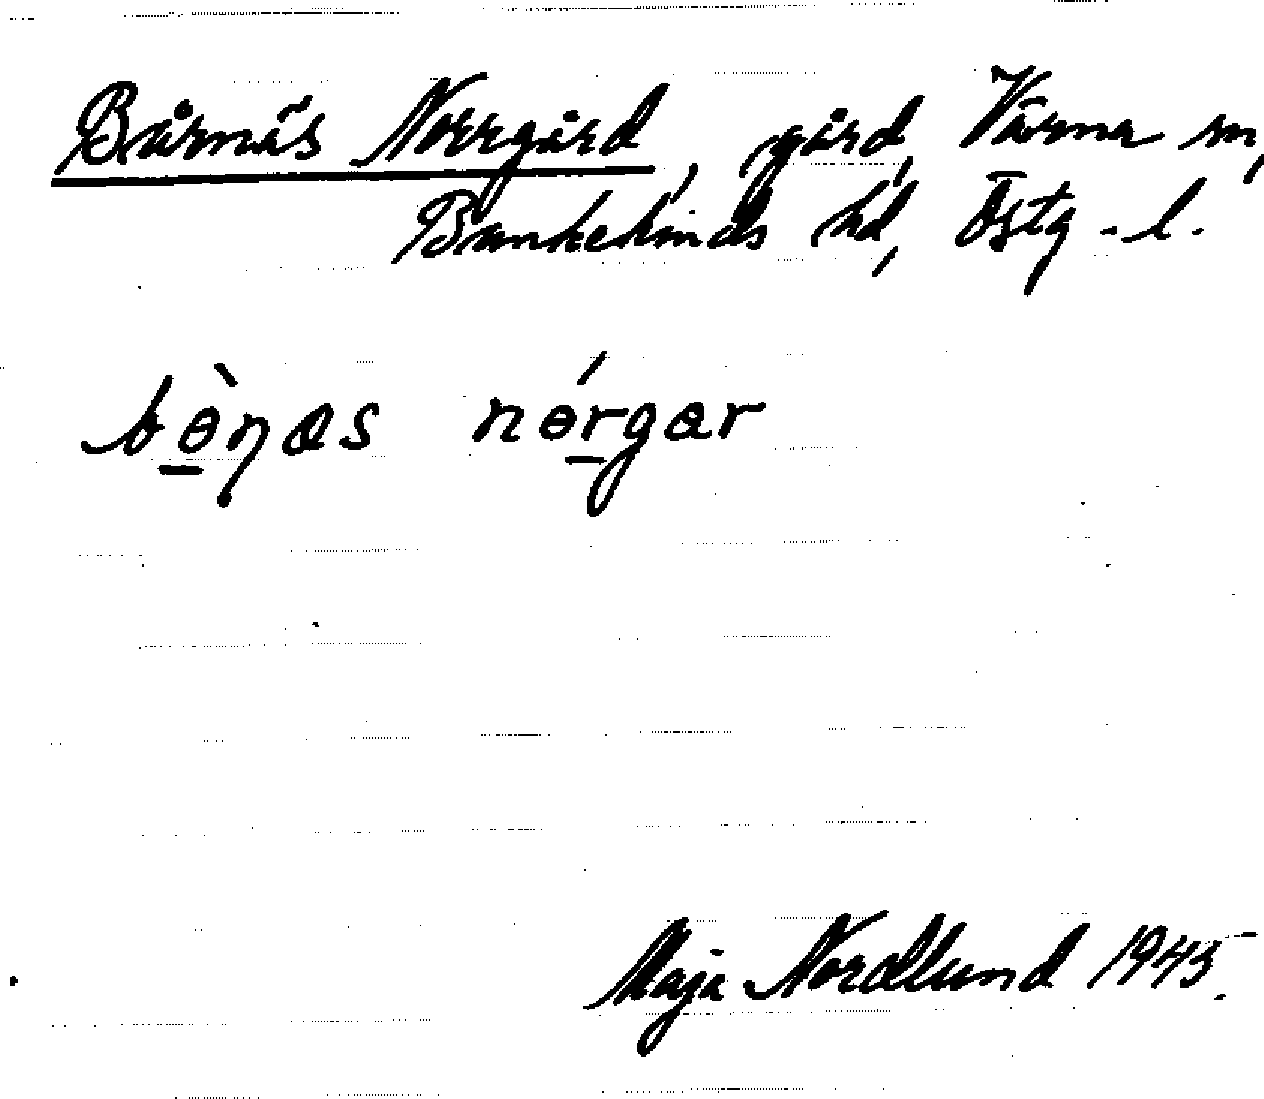 Bårnäs Norrgård, gård, Vårna sn,
Bankekinds hd, Östg.l.
bɵ̀ṇas nɵ́rgar
Maja Nordlund 1945.